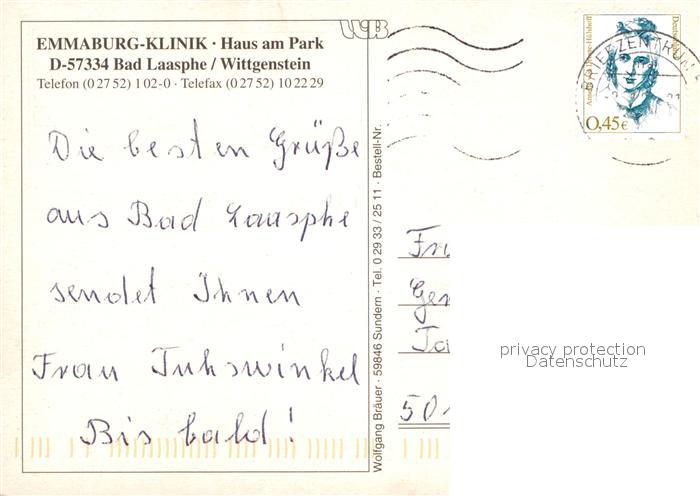 EMMABURG-KLINIK · Haus am Park
D-57334 Bad Laasphe / Wittgenstein
Telefon (0 27 52) 1 02-0 · Telefax (0 27 52) 10 22 29
Die besten Grüße
aus Bad Laasphe
sendet Ihnen
Frau Tuhswinkel
Bis bald!
Wolfgang Bräuer · 59846 Sundern · Tel. 0 29 33 / 25 11 · Bestell-Nr.
BRIEFZENTRUM
0,45€
privacy protection
Datenschutz